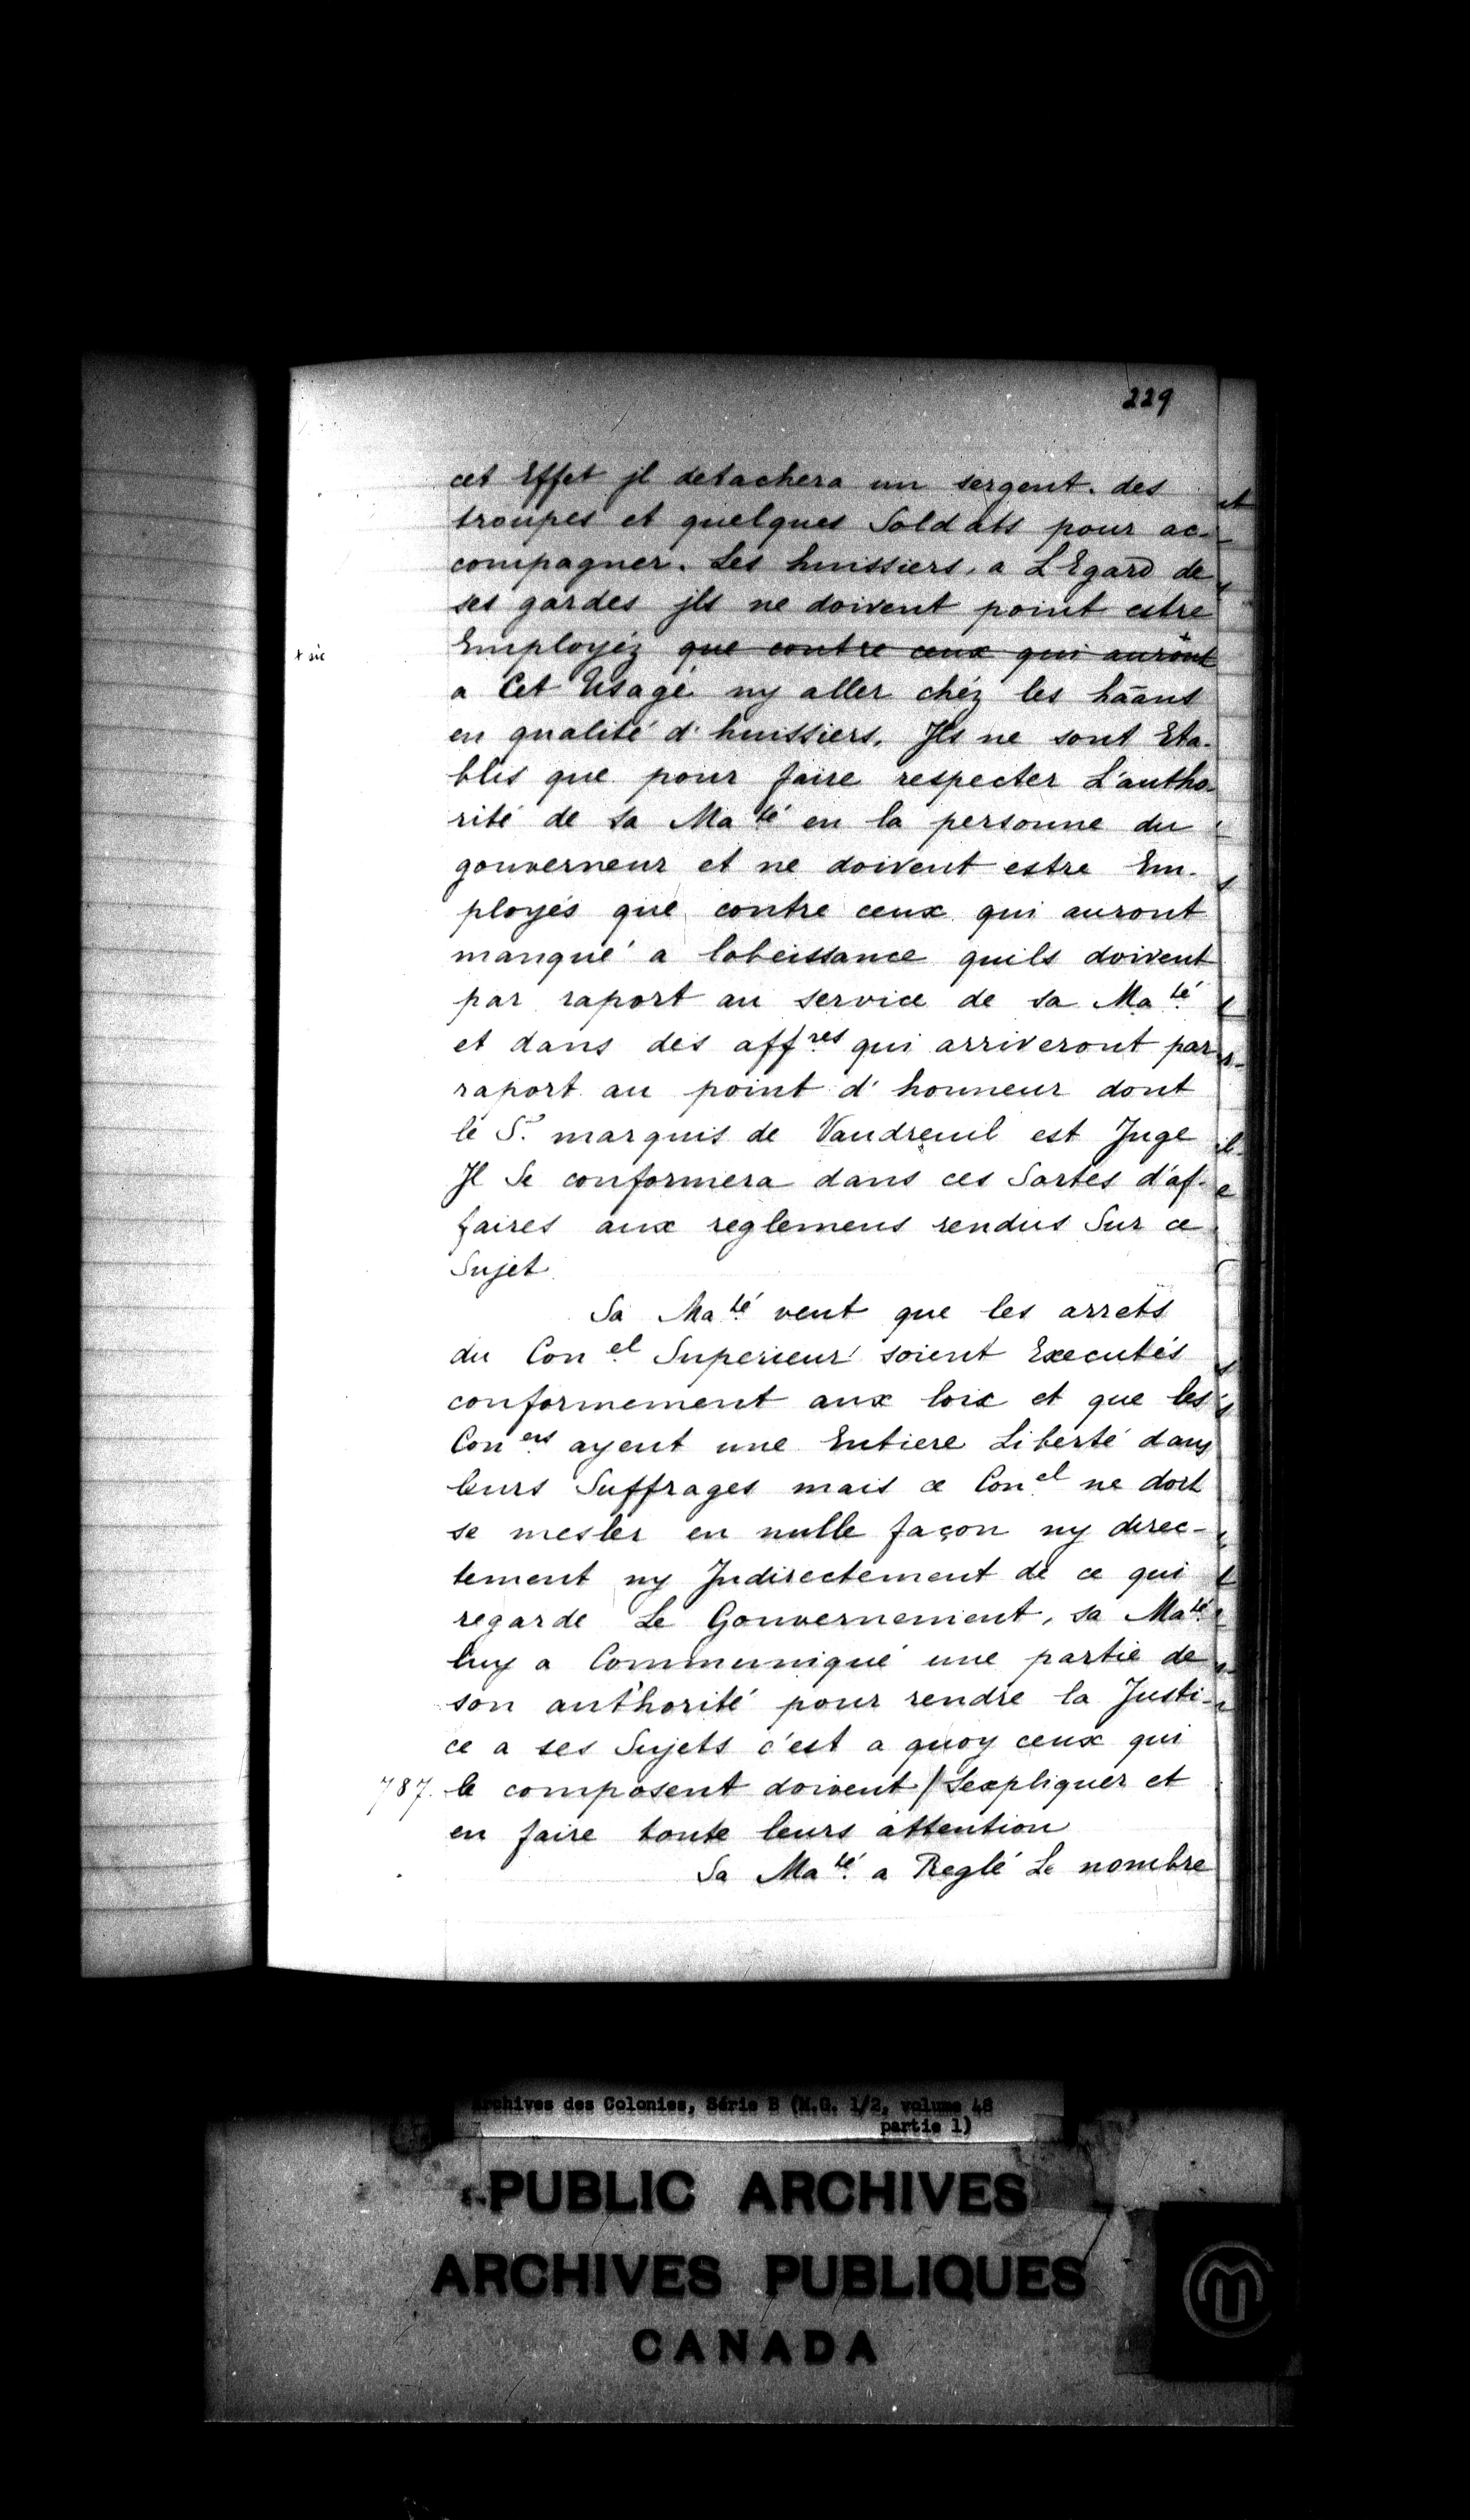 229
cet Effet jl detachera un sergent. des
troupes et quelques Soldats pour ac-
compagner. Les huissiers, a L'Egard de
ses gardes jls ne doivent point estre
+ sic
Employéz que contre ceux qui auront +
a Cet Usage ny aller chéz les hãans
en qualité d'huissiers. Jls ne sont Eta-
blis que pour faire respecter L'autho-
rité de sa Ma.té en la personne du
gouverneur et ne doivent estre Em-
ployés que contre ceux qui auront
manqué a lobeissance quils doivent
par raport au service de sa Ma.té
et dans des aff.res qui arriveront par
raport au point d'honneur dont
le S.r marquis de Vaudreuil est Juge
Jl Se conformera dans ces Sortes d'af-
faires aux reglemens rendus Sur ce
Sujet
Sa Ma.té veut que les arrets
du Con.el Superieur soient Executés
conformement aux loix et que les
Con.ers ayent une Entiere Liberté dans
leurs Suffrages mais ce Con.el ne doit
se mesler en nulle façon ny direc-
tement ny Jndirectement de ce qui
regarde Le Gouvernement, sa Ma.té
luy a Communiqué une partie de
son authorité pour rendre la Justi-
ce a ses Sujets c'est a quoy ceux qui
787. le composent doivent / Sexpliquer et
en faire toute leurs attention
Sa Ma.té a Reglé Le nombre
Archives des Colonies, Série B (M.G. 1/2, volume 48
partie 1)
PUBLIC ARCHIVES
ARCHIVES PUBLIQUES
CANADA